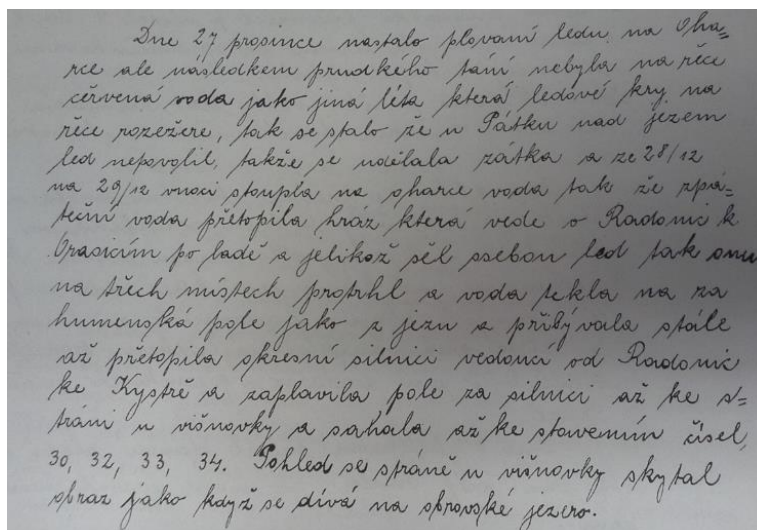 Dne 27 prosince nastalo plovaní ledu na Oha=
rce ale následkem prudkého tání nebyla na řěce
cěrvená voda jako jiná léta která ledové kry na
řěce rozežere, tak se stalo že u Pátku nad jezem
led nepovolil, takže se udělala zátka a ze 28/12
na 29/12 vnoci stoupla na oharce voda tak že zpá=
teční voda přetopila hráz která vede o Radonic k
Orasicím po ladě a jelikož sěl ssebou led tak onu
na třech místech protrhl a voda tekla na za
humenská pole jako z jezu a přibývala stále
až přetopila okresní silnici vedoucí od Radonic
ke Kystrě a zaplavila pole za silnici až ke s=
tráni u višnovky a sahala až ke stavením čísel,
30, 32, 33, 34. Pohled se stráně u višnovky skytal
obraz jako když se dívá na obrovské jezero.